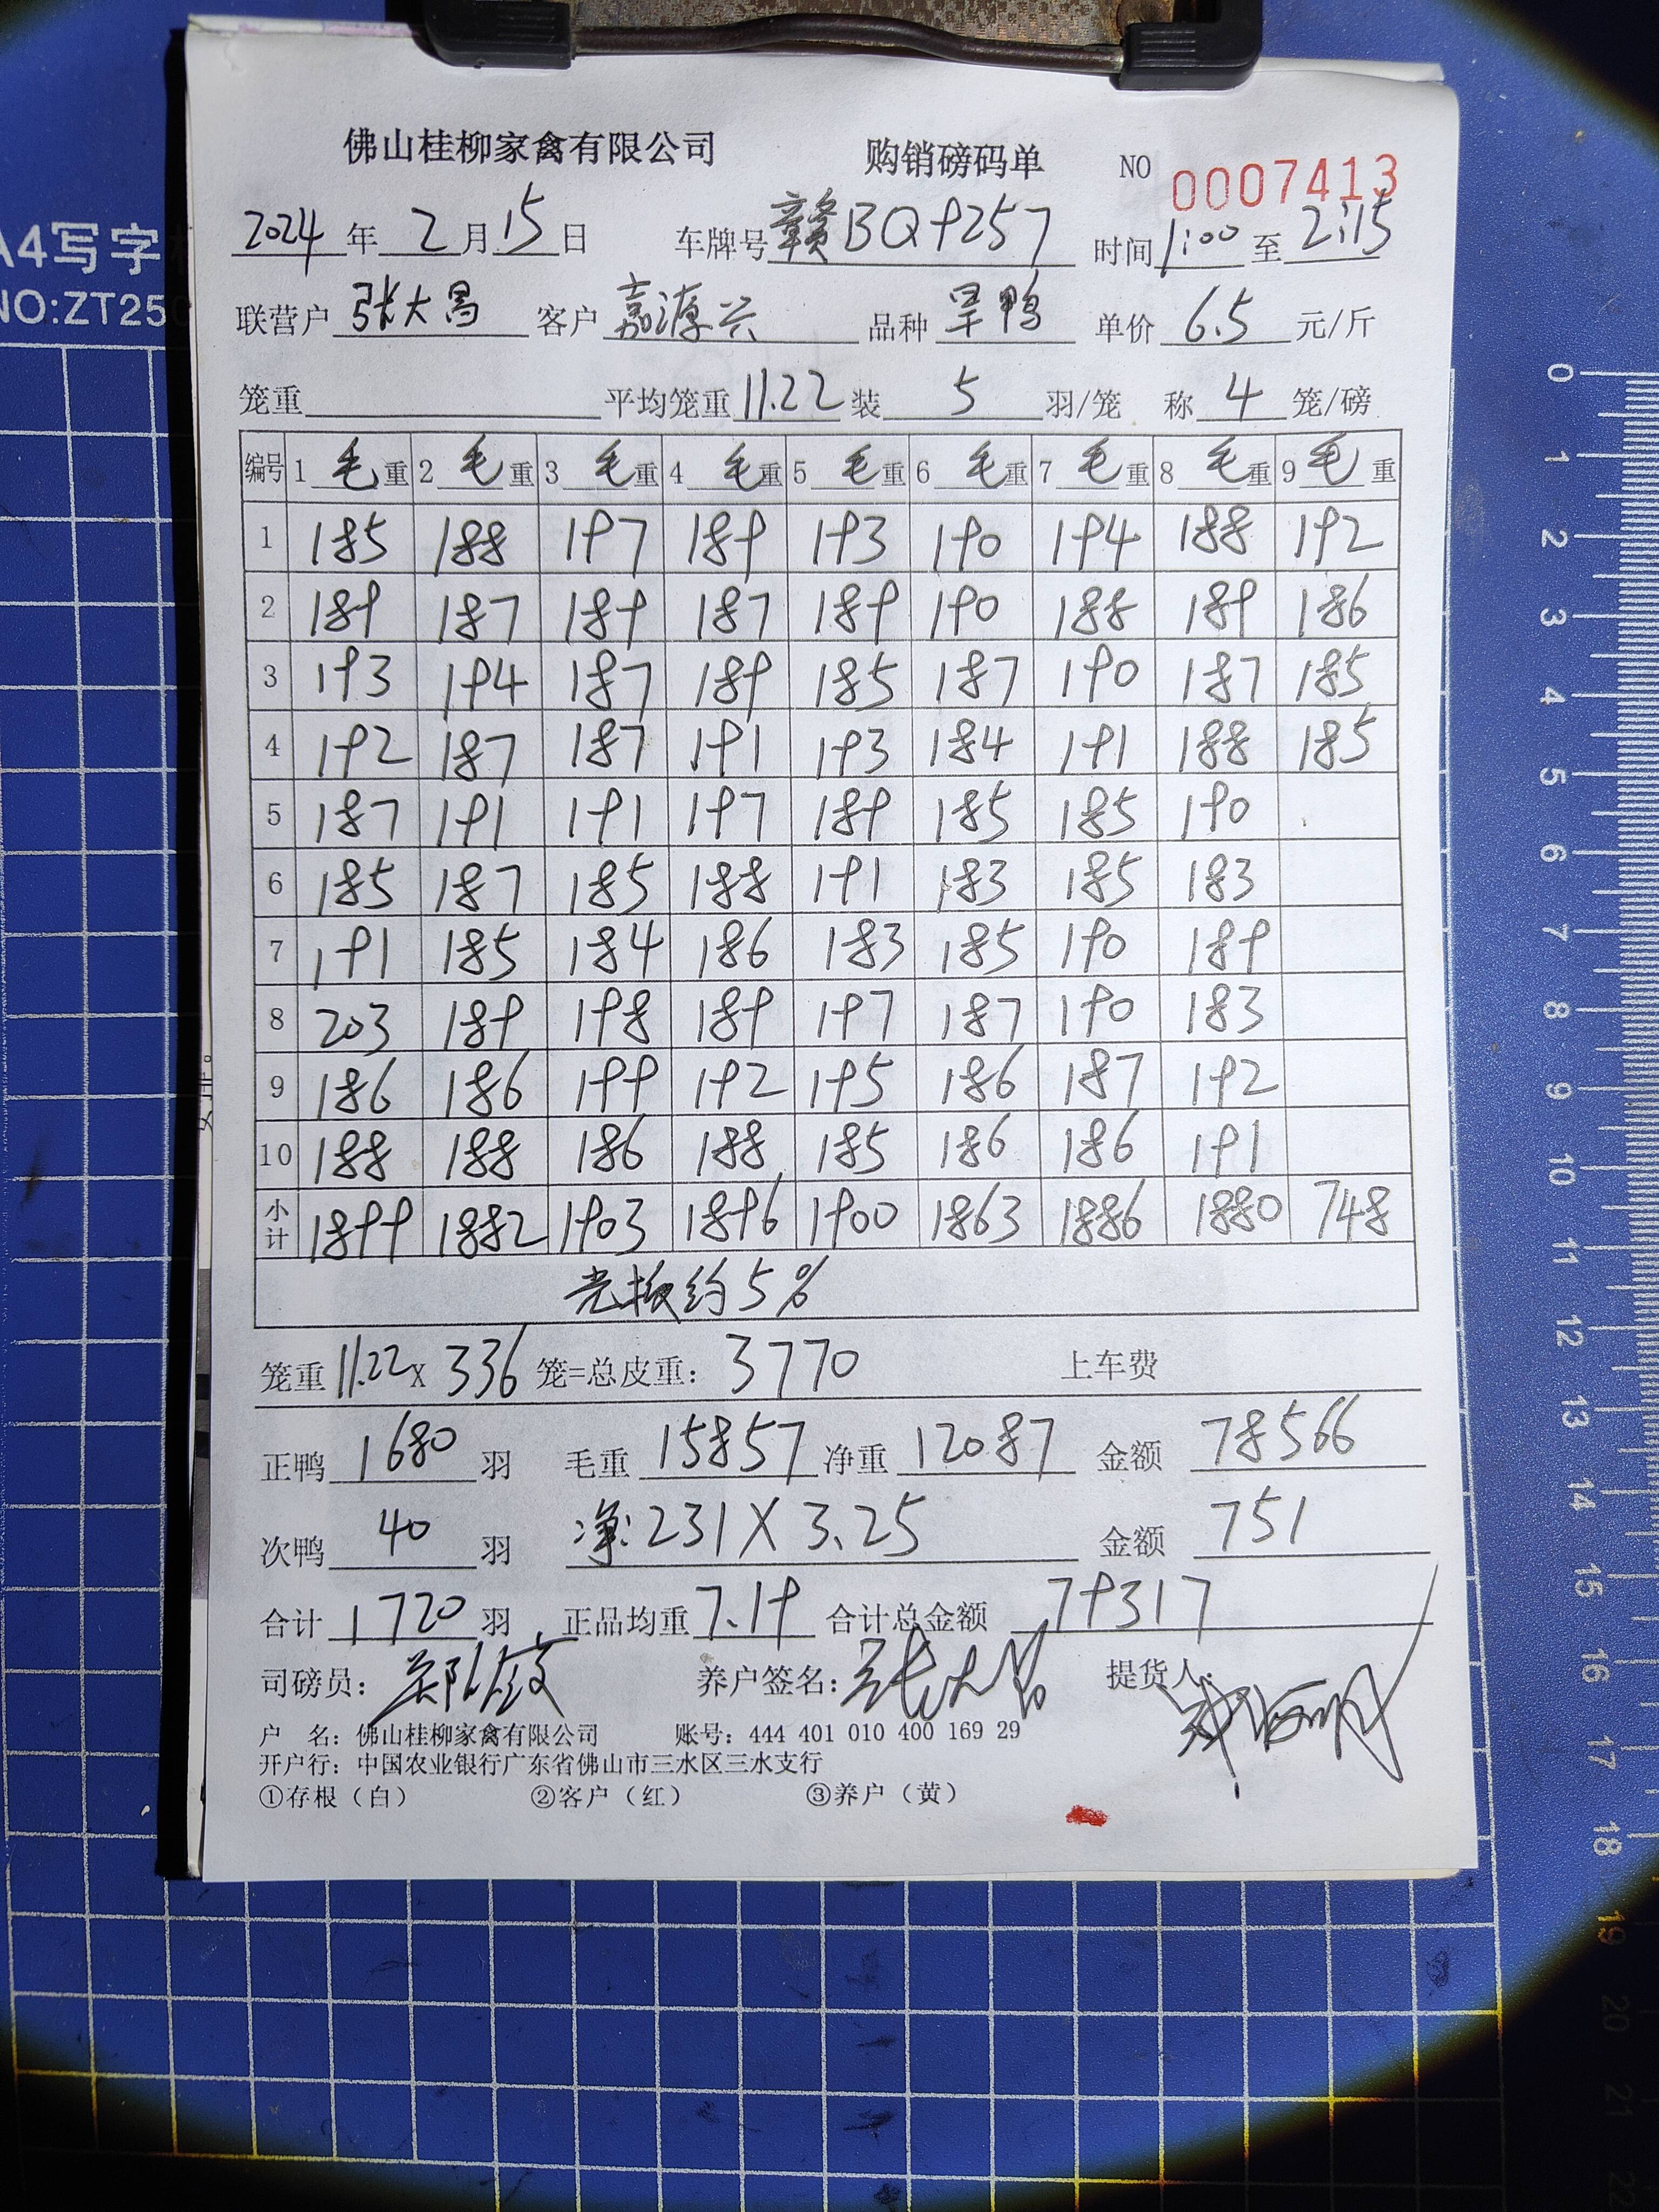 佛山桂柳家禽有限公司 购销磅码单 NO 0007413
2024年2月15日 车牌号赣BQ9257 时间1:00至2:15
联营户 张大昌 客户 嘉源兴 品种 旱鸭 单价 6.5 元/斤
笼重 平均笼重11.22装 5 羽/笼 称 4 笼/磅
编号 1毛重 2毛重 3毛重 4毛重 5毛重 6毛重 7毛重 8毛重 9毛重
1 185 188 197 189 193 190 194 188 192
2 189 187 189 187 189 190 188 189 186
3 193 194 187 189 185 187 190 187 185
4 192 187 187 191 193 184 191 188 185
5 187 191 191 197 189 185 185 190
6 185 187 185 188 191 183 185 183
7 191 185 184 186 183 185 190 189
8 203 189 198 189 197 187 190 183
9 186 186 199 192 195 186 187 192
10 188 188 186 188 185 186 186 191
小计 1899 1882 1903 1896 1900 1863 1886 1880 748
光板约5%
笼重11.22X 336 笼=总皮重: 3770 上车费
正鸭 1680 羽 毛重 15857 净重 12087 金额 78566
次鸭 40 羽 净:231X3.25 金额 751
合计 1720 羽 正品均重7.19 合计总金额 79317
司磅员: 养户签名:张大昌 提货人:
户 名:佛山桂柳家禽有限公司 账号:444 401 010 400 169 29
开户行:中国农业银行广东省佛山市三水区三水支行
①存根(白) ②客户(红) ③养户(黄)
A4写字
NO:ZT25
0 1 2 3 4 5 6 7 8 9 10 11 12 13 14 15 16 17 18 19 20 21 22